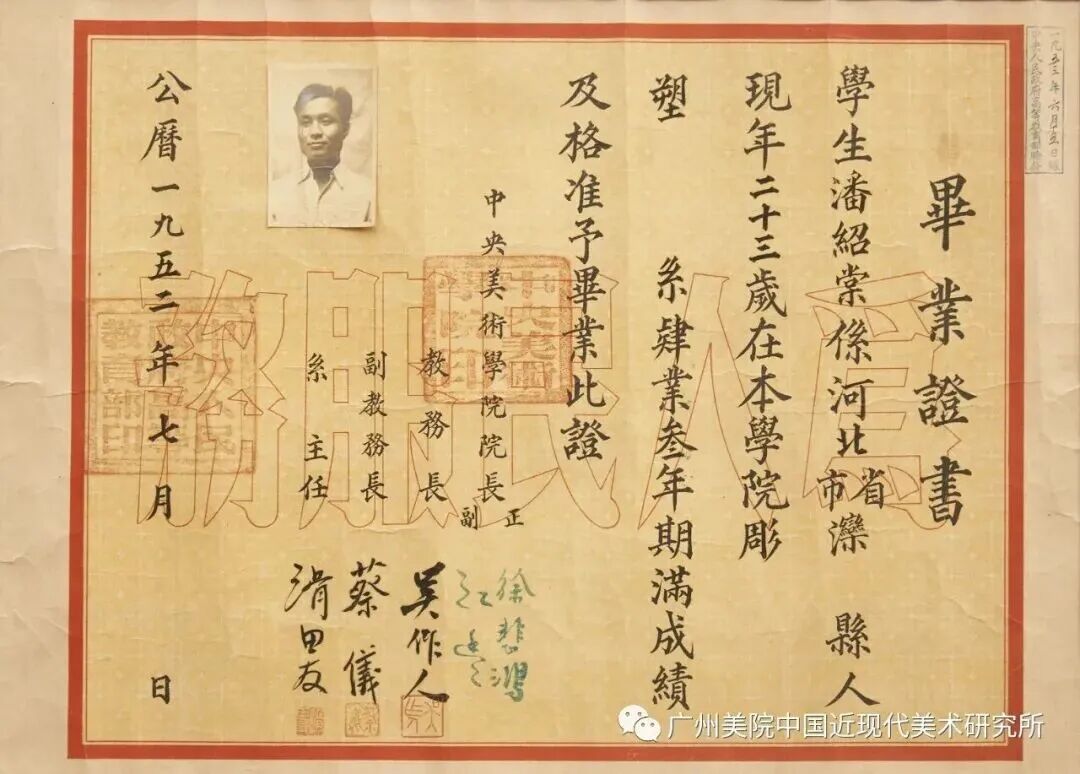 一九五三年六月十五日
中央人民政府高等教育部驗
畢業證書
學生潘紹棠係河北省市灤 縣人
現年二十三歲在本學院彫
塑 系肄業叁年期滿成績
及格准予畢業此證
中央美術學院院長正副
徐悲鴻
江豐
教務長 吴作人
副教務長 蔡儀
系主任 滑田友
公曆一九五二年七月 日
為人民服務
中央美術學院印
教育部印
广州美院中国近现代美术研究所